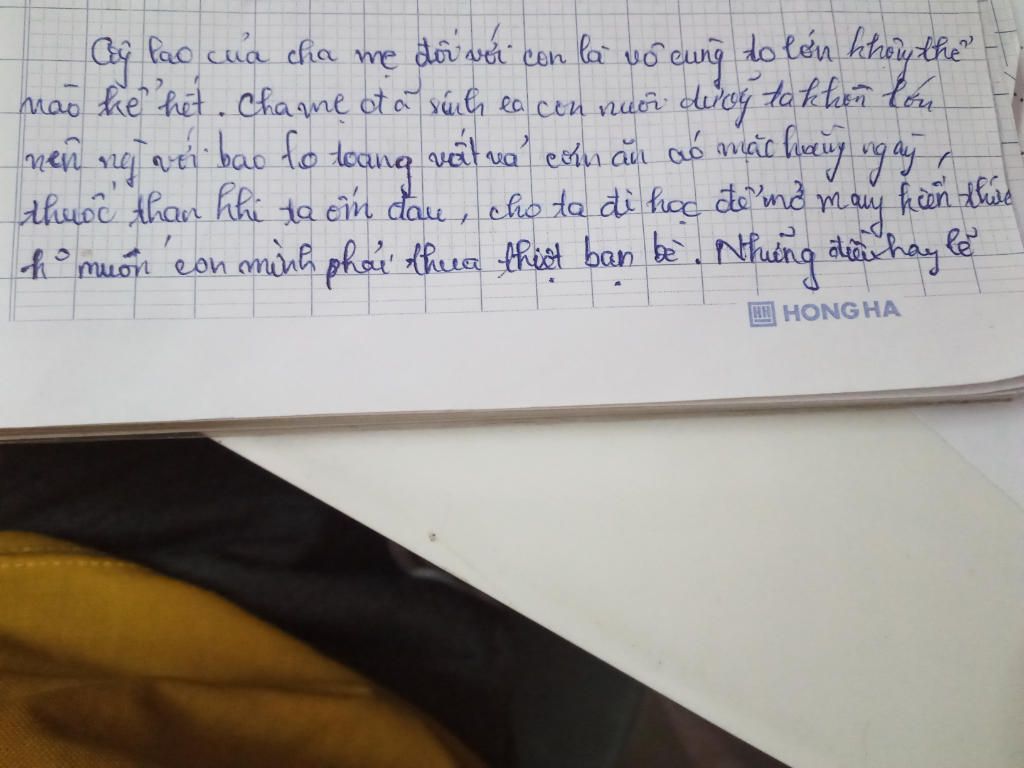 Công lao của cha mẹ đối với con là vô cùng to lớn không thể
nào kể hết. Cha mẹ đã sinh ra con nuôi dưỡng ta khôn lớn
nên ng với bao lo toang vất vả cơm ăn áo mặc hằng ngày,
thuốc than khi ta ốm đau, cho ta đi học để mở mang kiến thức
k° muốn con mình phải thua thiệt bạn bè. Những điều hay lẽ
HONG HA